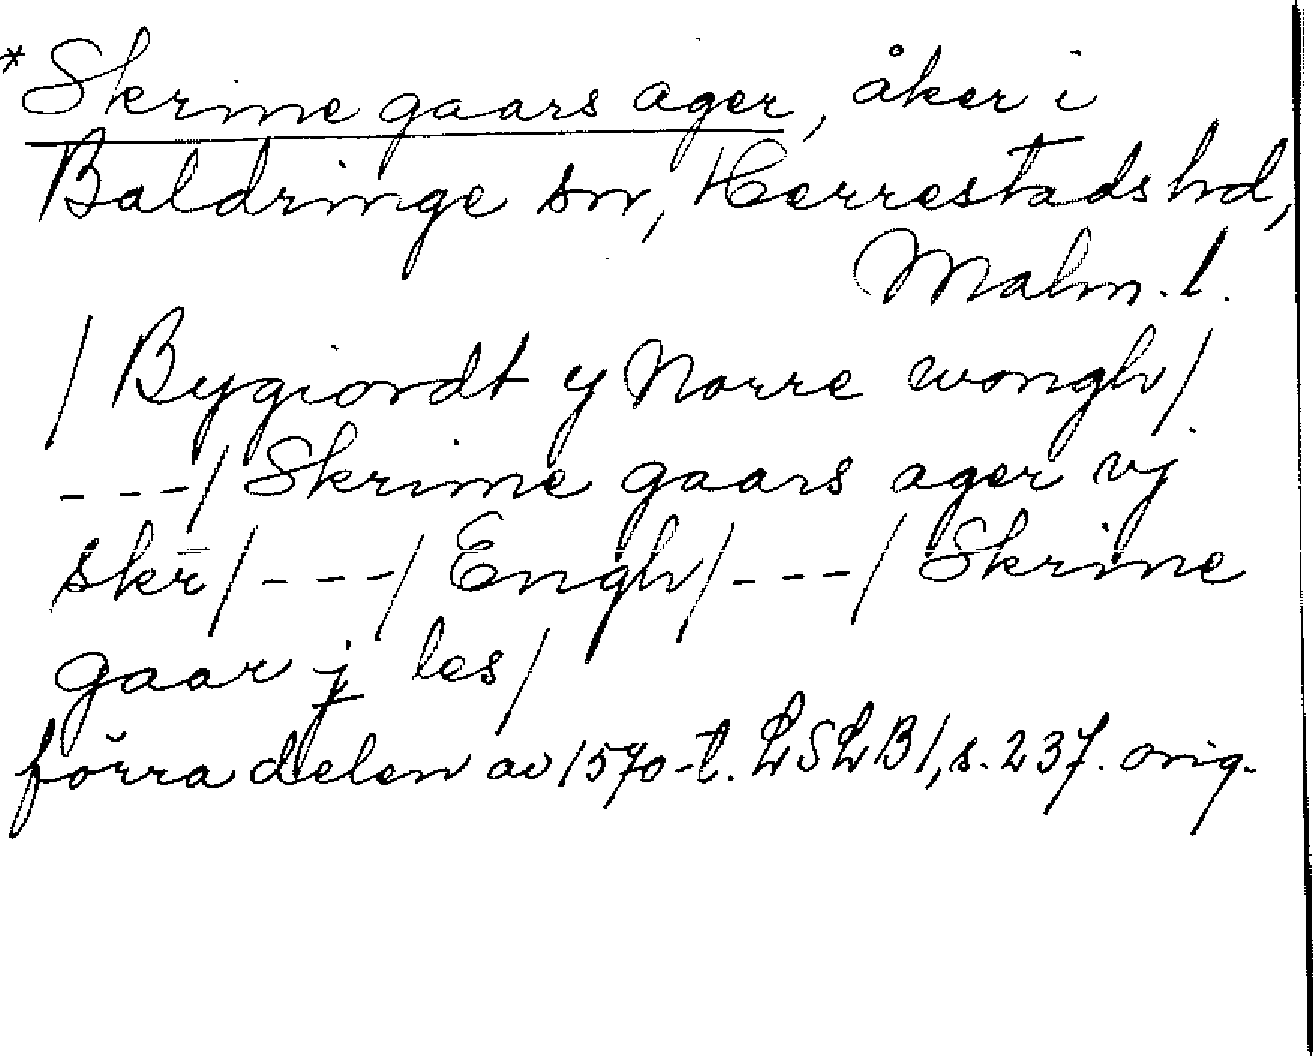 *Skrime gaars ager, åker i
Baldringe sn, Herrestads hd,
Malm. l.
/ Bygiordt y Norre wongh /
---/ Skrime gaars ager vj
skr̄ /---/ Engh /---/ Skrime
gaar j les /
förra delen av 1570-t. LSLB 1, s. 237. orig.